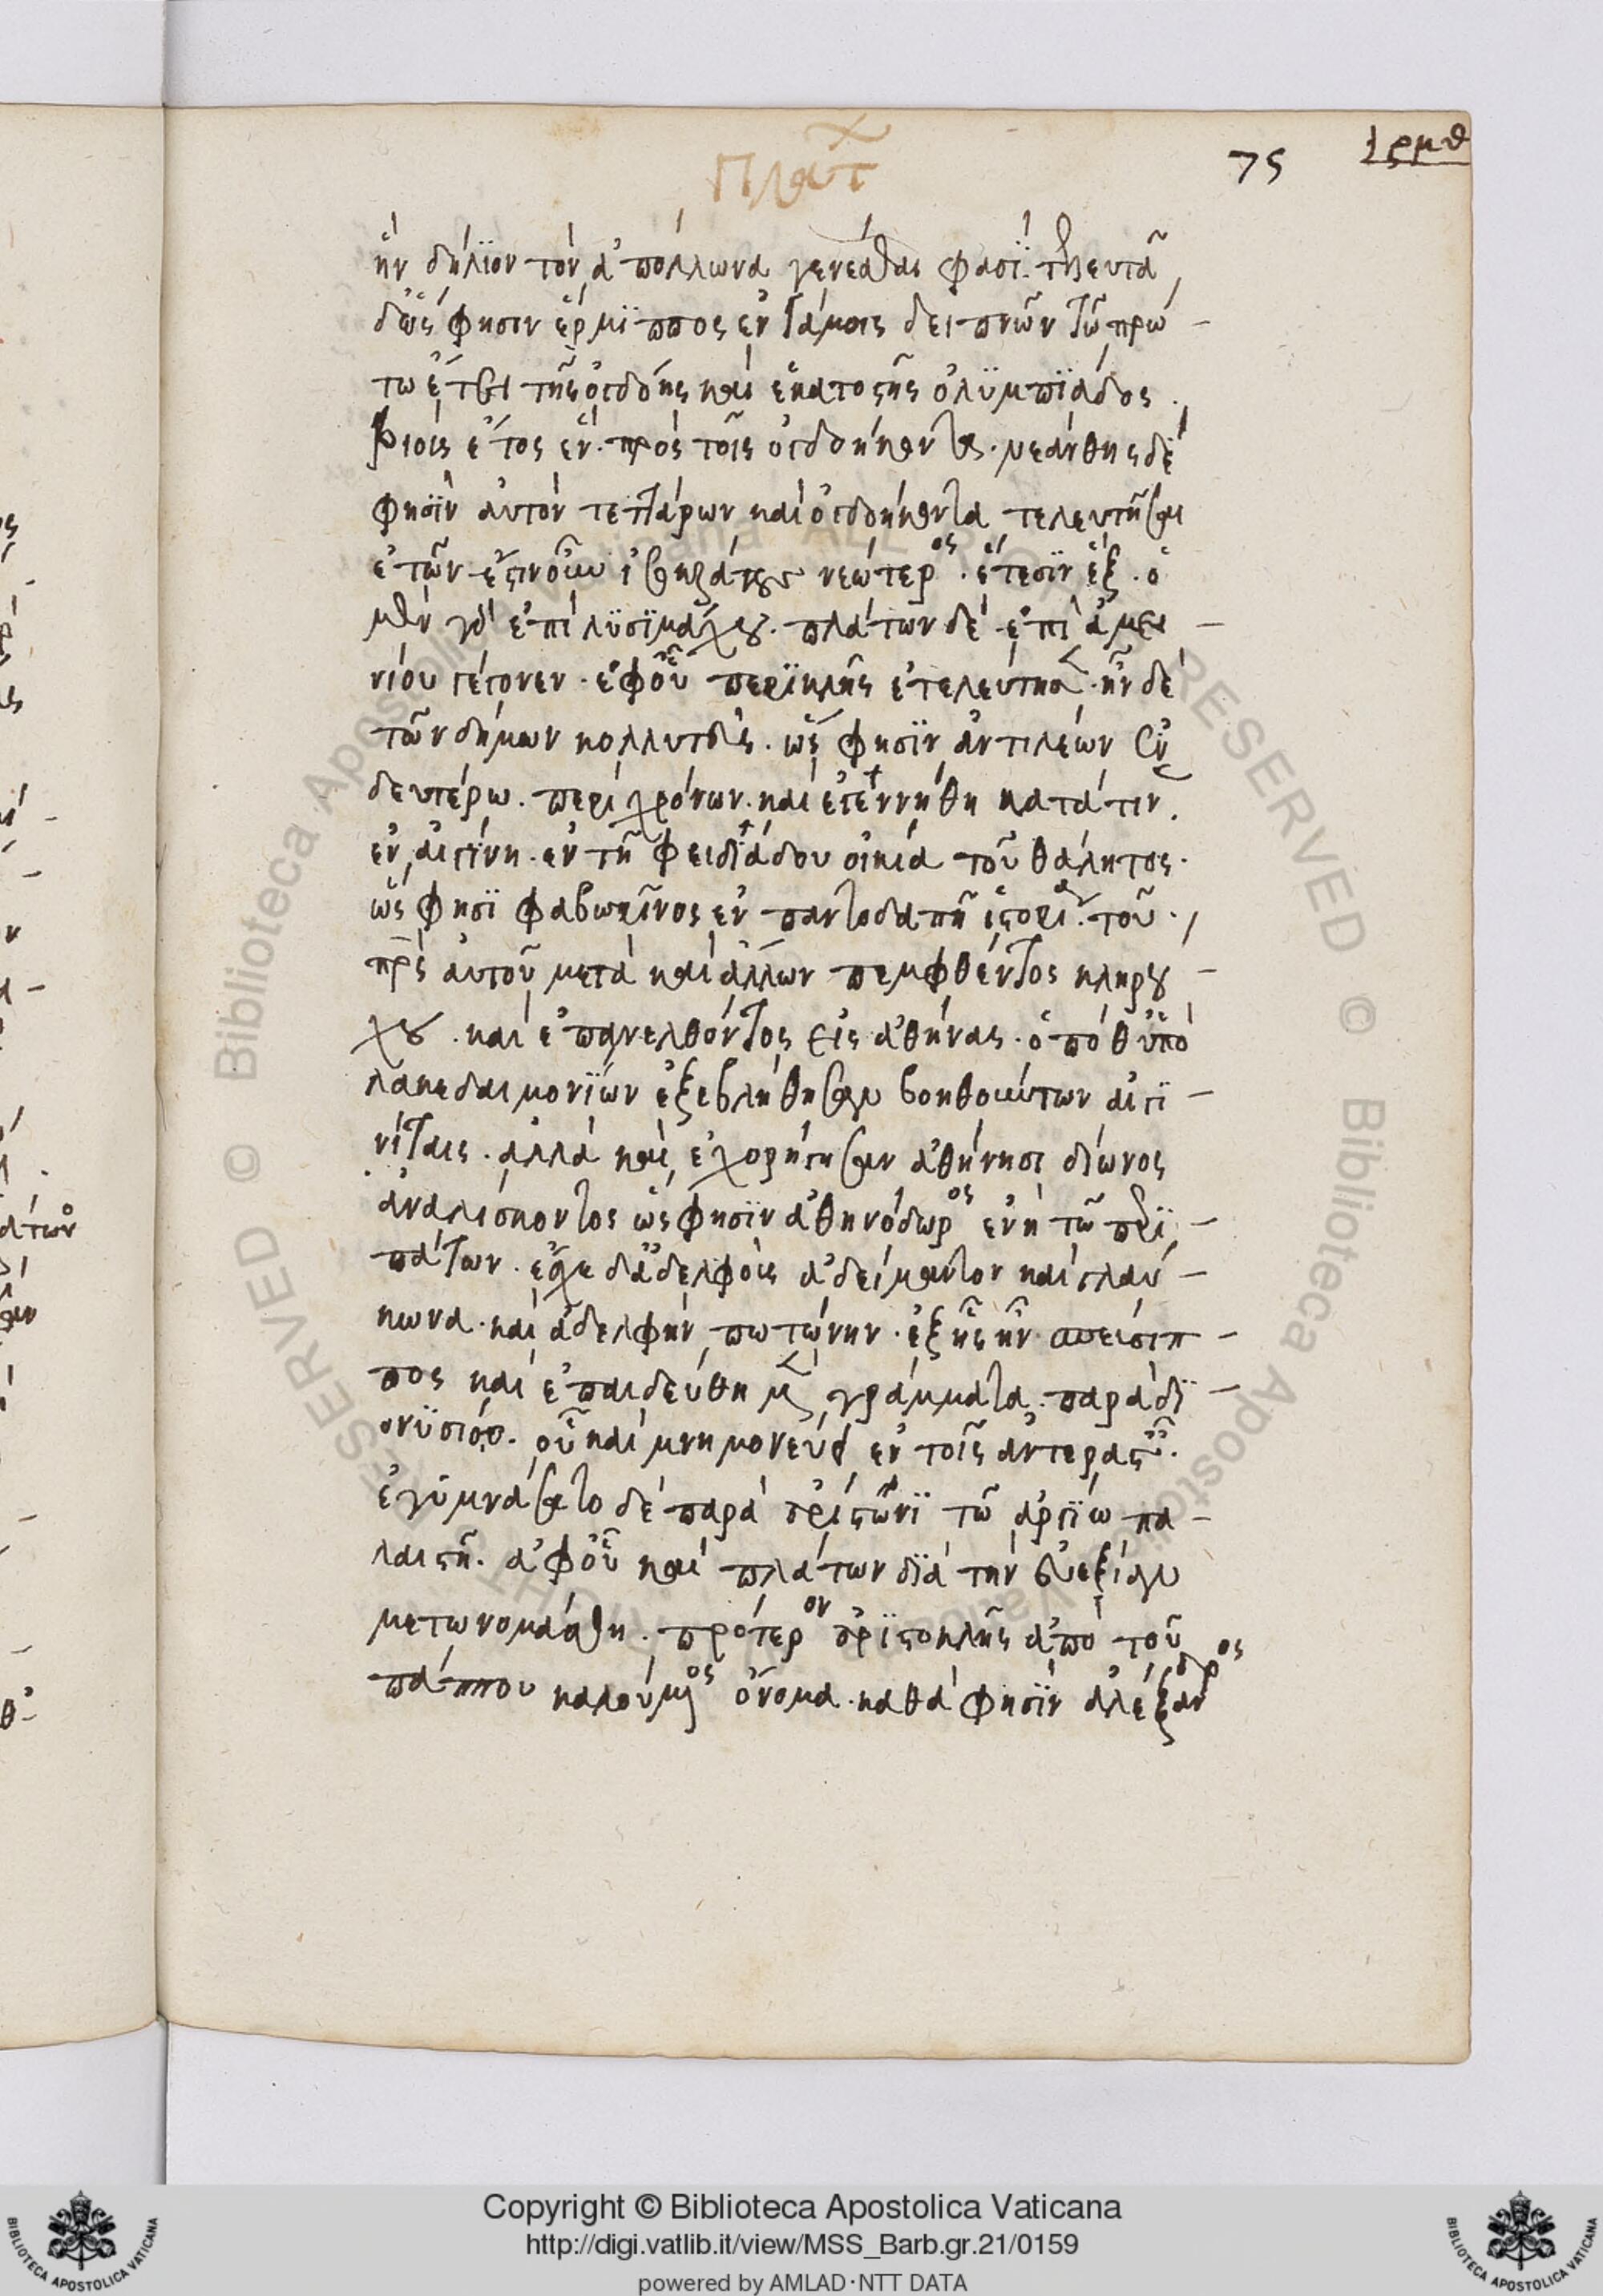 Πλάτ
75
ἣν δήλϊον τὸν ἀπόλλωνα γενέσθαι φασϊ. τελευτᾶ
δ' ὥς φησιν ἕρμϊππος ἐν γάμοις δειπνῶν τῶ πρώ-
τω ἔτει τῆς ὀγδόης καὶ ἑκατοστῆς ὀλϋμπϊάδος.
βιοὺς ἔτος ἓν πρὸς τοῖς ὀγδοήκοντα. νεάνθης δὲ
φησϊν αὐτὸν τεττάρων καὶ ὀγδοήκοντα τελευτῆσαι
ἐτῶν. ἔστιν οὖν ἰσοκράτους νεώτερος. ἔτεσϊν ἕξ. ὁ
μὲν γὰρ ἐπὶ λϋσϊμάχου. πλάτων δὲ. ἐπὶ ἀμει-
νίου γέγονεν. ἐφ' οὗ περϊκλῆς ἐτελεύτησε. ἦν δὲ
τῶν δήμων κολλυτεὺς. ὥς φησϊν ἀντιλέων ἐν
δευτέρω. περὶ χρόνων. καὶ ἐγεννήθη κατά τιν.
ἐν αἰγίνη. ἐν τῆ φειδϊάδου οἰκία τοῦ θάλητος.
ὥς φησϊ φαβωρῖνος ἐν παντοδαπῆ ἱστορία. τοῦ.
πρς αὐτοῦ μετὰ καὶ ἄλλων πεμφθέντος κληρού-
χου. καὶ ἐπανελθόντος εἰς ἀθήνας. ὁπόθ' ὑπὸ
λακεδαιμονϊων ἐξεβλήθησαν βοηθούντων αἰγϊ-
νίταις. ἀλλὰ καὶ ἐχορήγησεν ἀθήνησι δίωνος
ἀναλίσκοντος ὥς φησϊν ἀθηνόδωρος ἐν η τῶ περϊ-
πάτων. ἔσχε δ' ἀδελφοὺς ἀδείμαντον καὶ γλαύ-
κωνα. καὶ ἀδελφὴν πωτώνην. ἐξ ἧς ἦν σπεύσιπ-
πος καὶ ἐπαιδεύθη μὲν γράμματα. παρὰ δϊ-
ονϋσίω. οὗ καὶ μνημονεύει ἐν τοῖς ἀντεραστ.
ἐγϋμνάσατο δὲ παρὰ ἀρίστωνϊ τῶ ἀργϊω πα-
λαιστῆ. ἀφ' οὗ καὶ πλάτων δϊὰ τὴν εὐεξίαν
μετωνομάσθη. πρότερον ἀρϊστοκλῆς ἀπὸ τοῦ
πάππου καλούμενος ὄνομα. καθά φησϊν ἀλέξανδρος
Copyright © Biblioteca Apostolica Vaticana
http://digi.vatlib.it/view/MSS_Barb.gr.21/0159
powered by AMLAD·NTT DATA